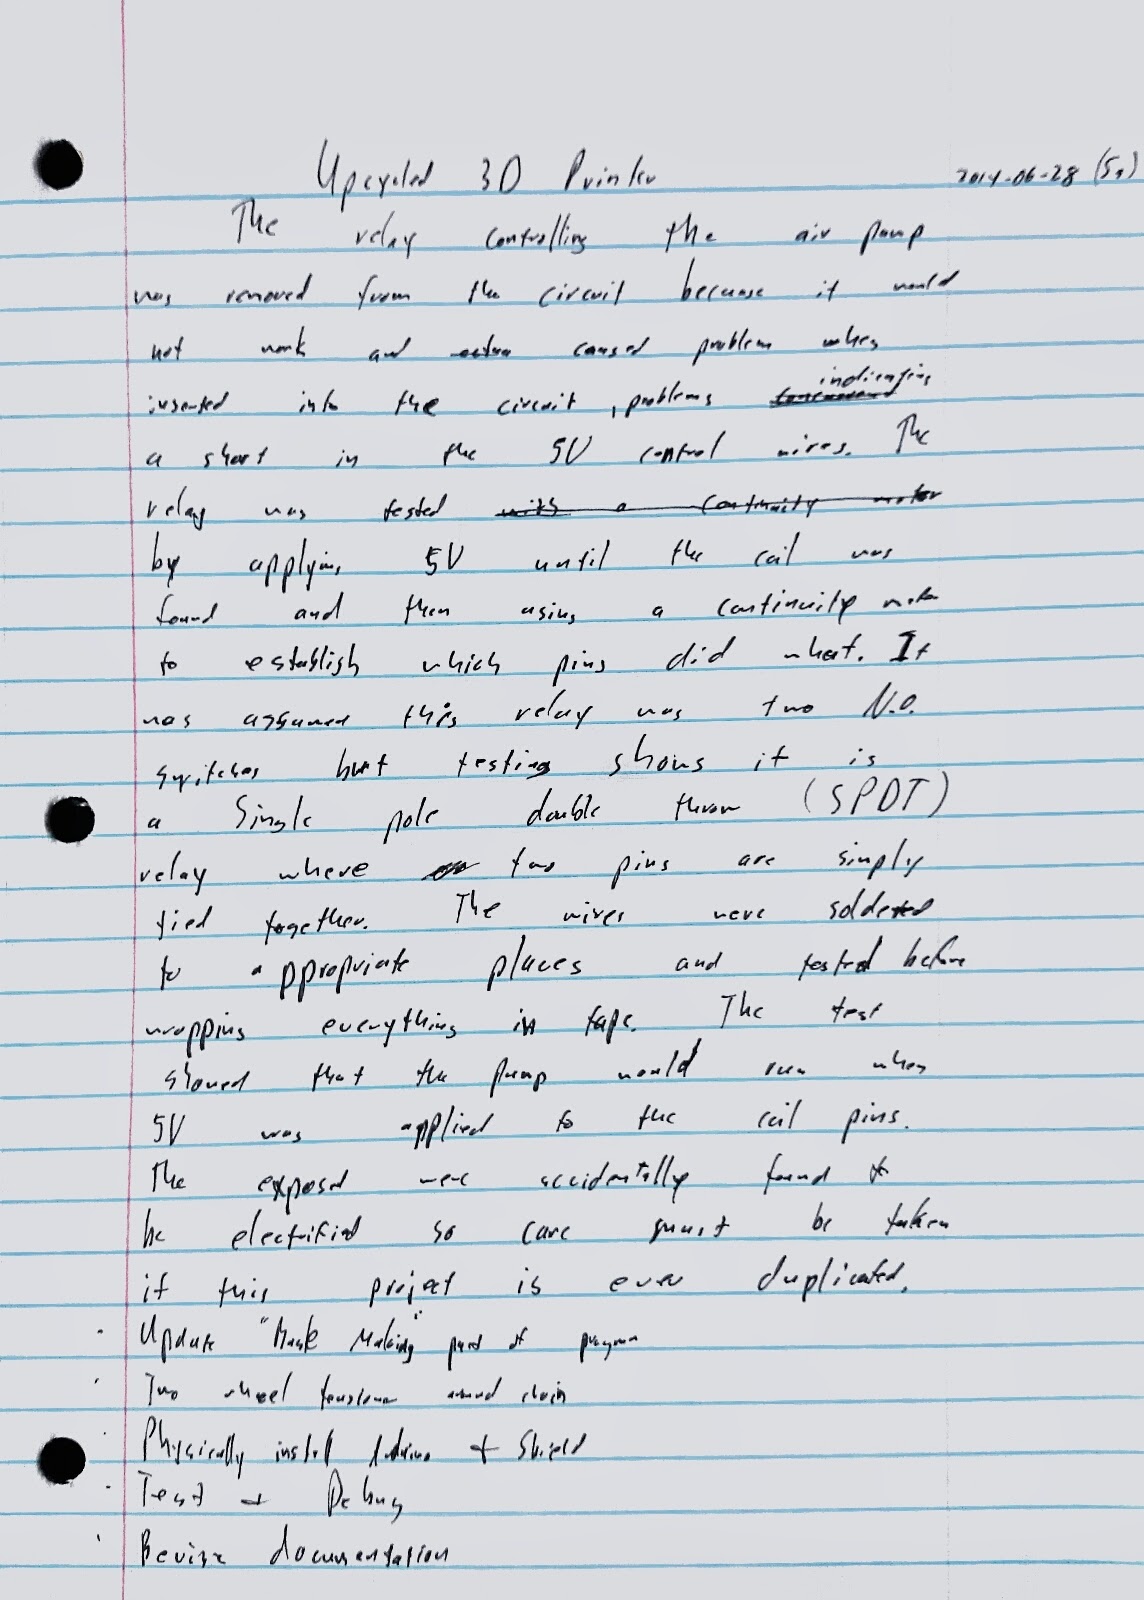 Upcycled 3D Printer 2014-06-28 (Sa)
The relay controlling the air pump
was removed from the circuit because it would
not work and caused problem when
inserted into the circuit, problems indicating
a short in the 5V control wires. The
relay was tested with a continuity meter
by applying 5V until the coil was
found and then using a continuity meter
to establish which pins did what. It
was assumed this relay was two N.O.
switches but testing shows it is
a Single pole double throw (SPDT)
relay where two pins are simply
tied together. The wires were soldered
to appropriate places and tested before
wrapping everything in tape. The test
showed that the pump would run when
5V was applied to the coil pins.
The exposed were accidentally found to
be electrified so care must be taken
if this project is ever duplicated.
· Update "Mask Making" part of program
· Two wheel tensioner around chain
· Physically install Arduino + Shield
· Test + Debug
· Revise documentation